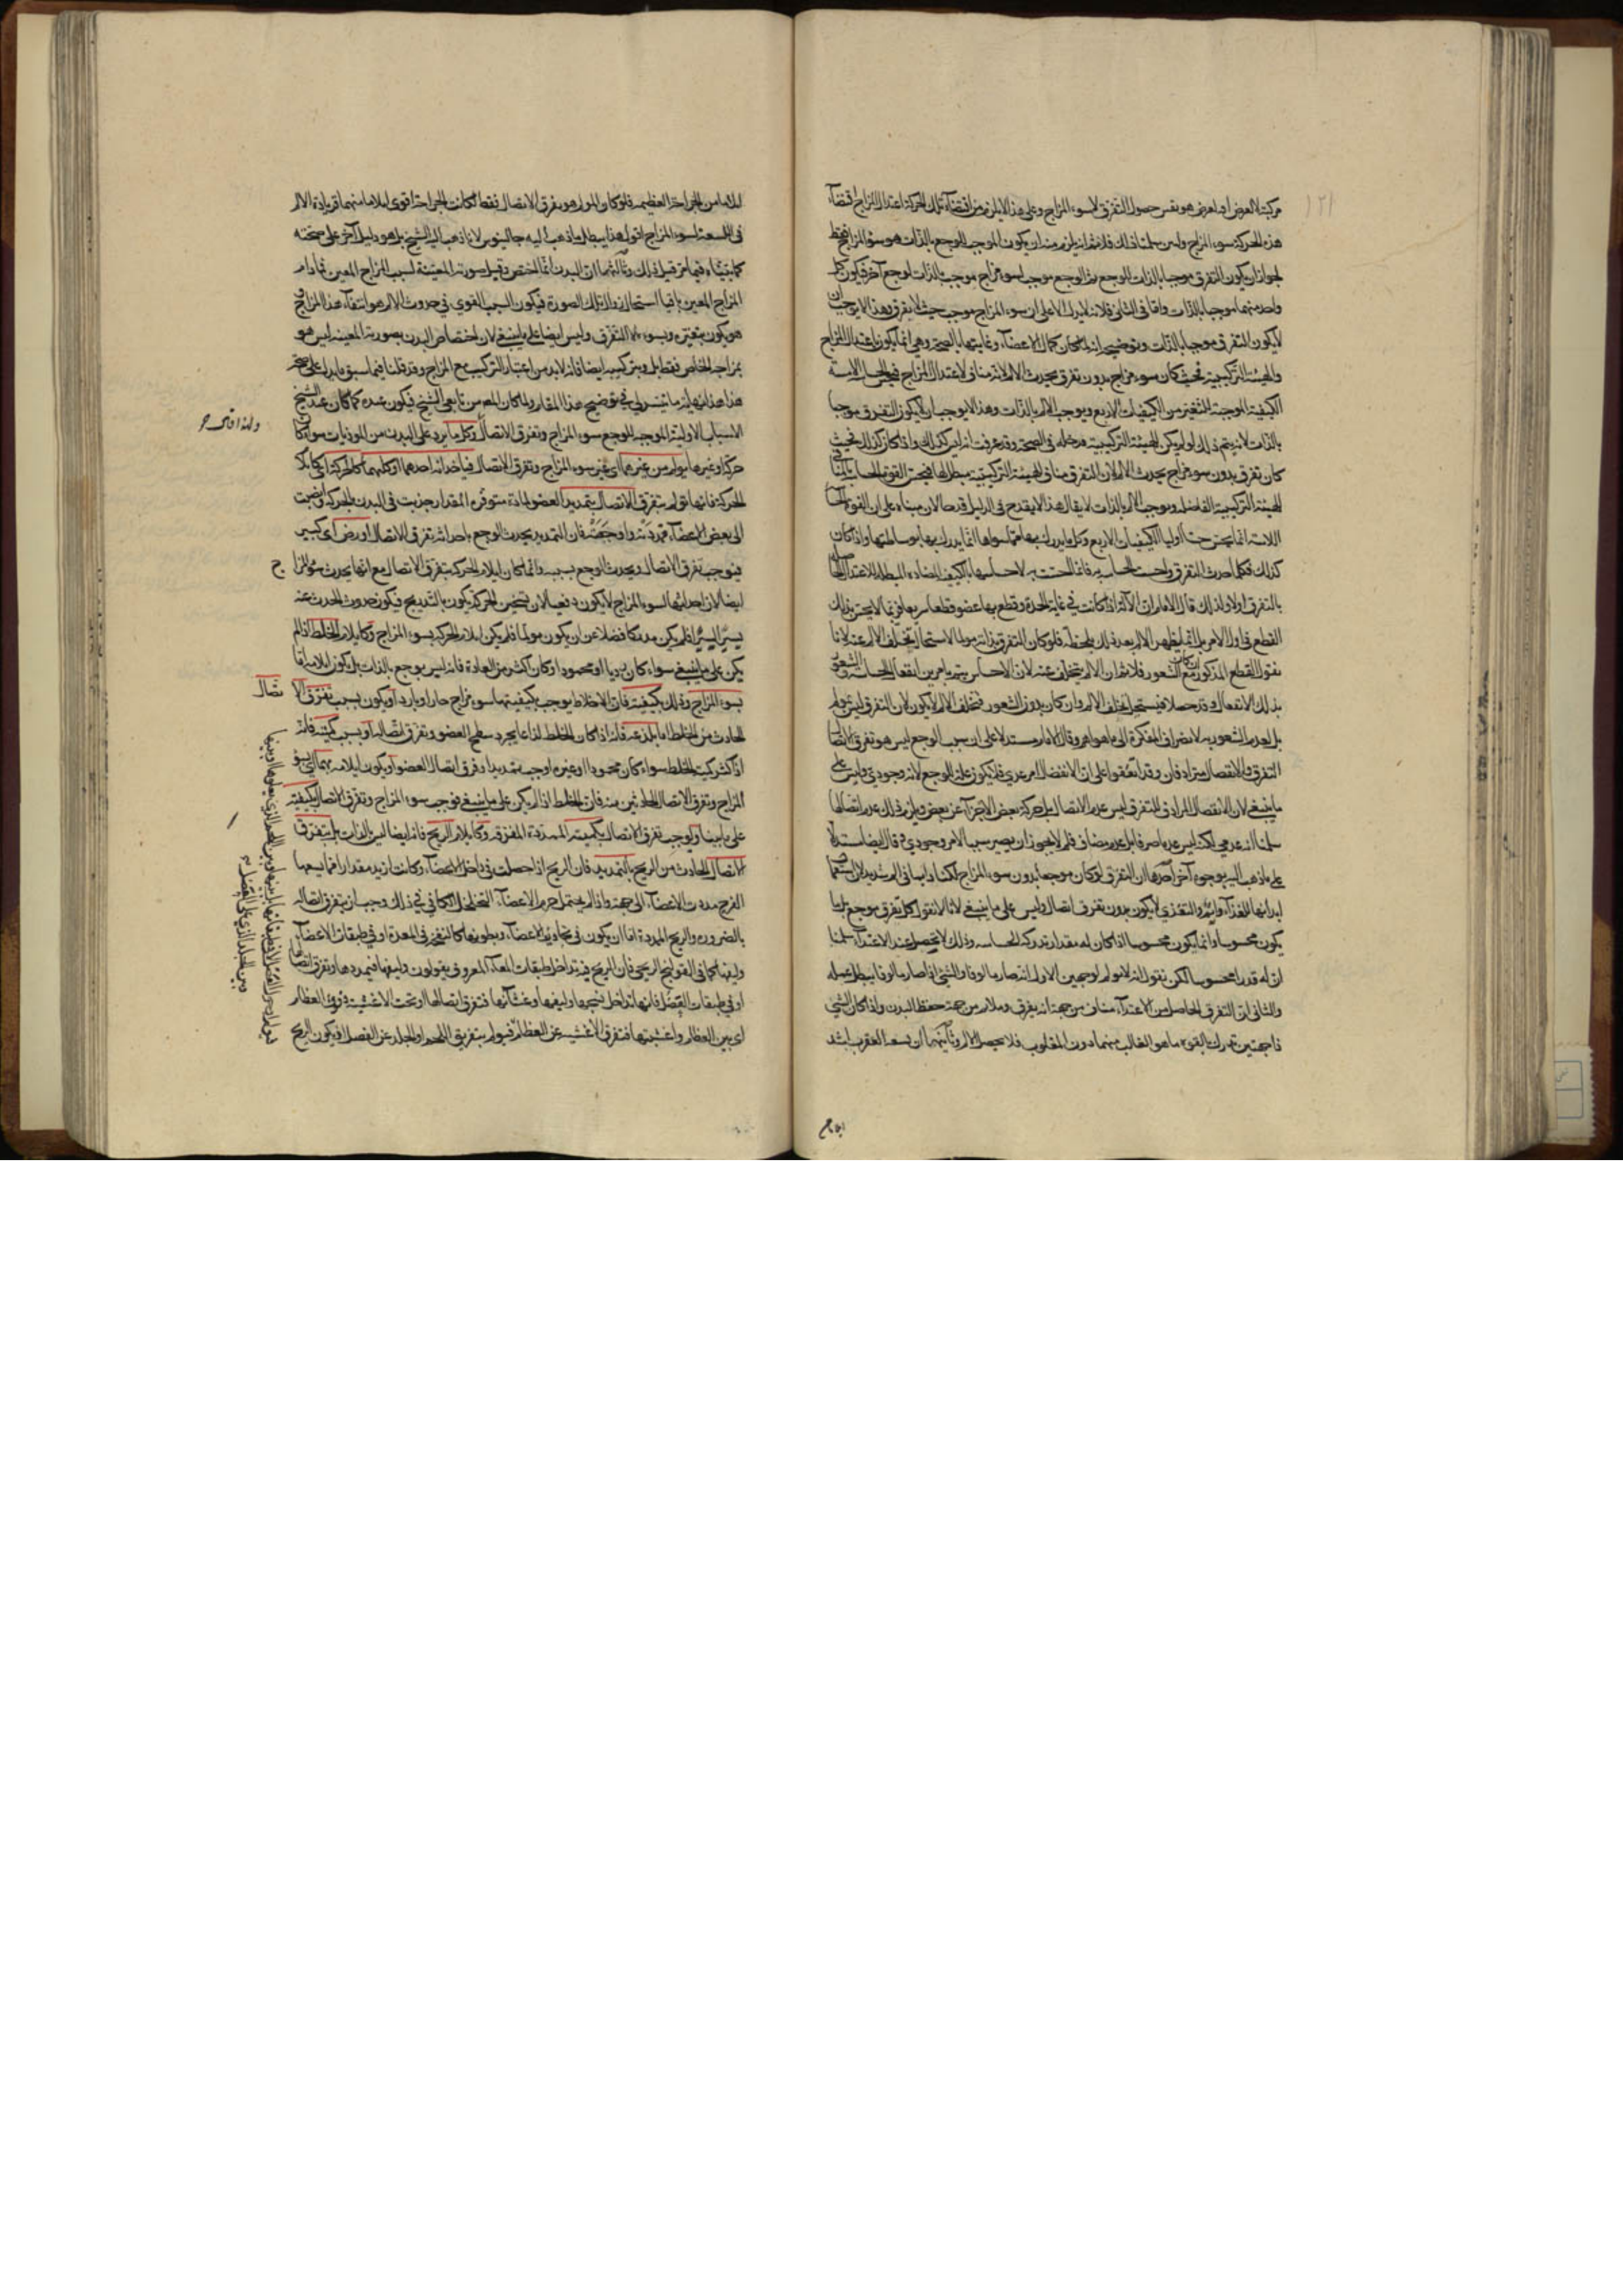 مركبة لالعرض
هذه الحركة سوء المزاج ولئن سلمنا ذلك فلا نم انه يلزم منه ان يكون الموجب للوجع بالذات هو سوء المزاج فقط
لجواز ان يكون التفرق موجبا بالذات للوجع ثم الوجع موجب لسوء مزاج موجب بالذات لوجع آخر فيكون كل
واحد منهما موجبا بالذات واما في الثاني فلانه لا يدل الا على ان سوء المزاج موجب حيث لا تفرق وهذا لا يوجب ان
لا يكون التفرق موجبا بالذات وتوضيحه انه لما كان كمال الاعضاء وغايتها بالصحة وهي انما يكون باعتدال المزاج
والهيئة التركيبية فحيث كان سوء مزاج بدون تفرق يحدث الالم لانه مناف لاعتدال المزاج
الكيفية الموجبة للتغير من الكيفيات الاربع ويوجب الالم بالذات وهذا لا يوجب ان لا يكون التفرق موجبا
بالذات لانه يتم ذلك لو لم يكن للهيئة التركيبية مدخل في الصحة وقد عرفت انه ليس كذلك واذا كان كذلك فحيث
كان تفرق بدون سوء مزاج يحدث الالم لان التفرق مناف للهيئة التركيبية مبطل لها فيحس القوة الحساسة
للهيئة التركيبية الفاضلة ويوجب الالم بالذات لا يقال هذا لا يقدح في الدليل قدحا لان مبناه على ان القوة
اللامسة انما يحس حسا اوليا الكيفيات الاربع وكل ما يدرك بها مما سواها انما يدرك بها بوساطتها واذا كان
كذلك فكلما احدث التفرق واحست الحاسة به فانما احست به لاحساسها بالكيف المضادة المبطلة للاعتدال
بالتفرق اولا ولذلك قال الامام ان الآلة اذا كانت في غاية الحدة وقطع بها عضو قطعا سريعا فربما لا يحس بذلك
القطع في اول الامر بل انما يظهر الالم بعد ذلك بلحظة فلو كان التفرق بذاته مولما لاستحال تخلف الالم عنه لانا
نقول القطع المذكور ان كان مع الشعور فلا نم ان الالم يتخلف عنه لان الاحساس يتم بامرين انفعال الحاسة والشعور
بذلك الانفعال وقد حصلا فيستحيل تخلف الالم وان كان بدون الشعور فتخلف الالم لا يكون لان التفرق ليس بمولم
بل لعدم الشعور به لانصراف الفكرة الى ما هو اهم وقال الامام مستدلا على ان سبب الوجع ليس هو تفرق الاتصال
التفرق والانفصال مترادفان وقد اتفقوا على ان الانفصال امر عدمي فلا يكون علة للوجع لانه وجودي وليس على
ما ينبغي لان الانفصال المرادف للتفرق ليس عدم الاتصال بل حركة بعض الاجزاء عن بعض ويلزم ذلك عدم اتصالها
سلمنا انه عدمي لكنه ليس عدما صرفا بل عدم مضاف فلم لا يجوز ان يصير سببا لامر وجودي وقال ايضا مستدلا
على ما ذهب اليه بوجوه آخر احدها ان التفرق لو كان موجعا بدون سوء المزاج لكنا دايما في الم شديد لان استعمال
ابداننا للغذاء والنمو والتغذي لا يكون بدون تفرق اتصال وليس على ما ينبغي لانا لا نقول كل تفرق موجع بل ما
يكون محسوسا وانما يكون محسوسا اذا كان له مقدار تدركه الحاسة وذلك لا يحصل عند الاغتذاء سلمنا
ان له قدرا محسوسا لكن نقول انه لا يولم لوجهين الاول انه صار مالوفا والشيء اذا صار مالوفا يبطل عمله
والثاني ان التفرق الحاصل من الاغتذاء مناف من جهة انه تفرق وملايم من جهة حفظ البدن واذا كان الشيء
ذا جهتين تدرك القوة ما هو الغالب منهما دون المغلوب فلا يحصل الالم وثانيهما ان لسعة العقرب اشد
ايلاما
ايلاما من الجراحة العظيمة فلو كان المولم هو تفرق الاتصال فقط لكانت الجراحة اقوى ايلاما منهما فزيادة الالم
في اللسعة لسوء المزاج اقول هذا يبطل ما ذهب اليه جالينوس لا ما ذهب اليه الشيخ بل هو دليل آخر على صحته
كما بيناه فيما مر قبل ذلك وثالثهما ان البدن انما اختص وقبل صورته المعينة لسبب المزاج المعين فما دام
المزاج المعين باقيا استحال زوال تلك الصورة فيكون السبب القوي في حدوث الالم هو انتفاء هذا المزاج
هو يكون بتغيره وبسوء لا التفرق وليس ايضا على ما ينبغي لان اختصاص البدن بصورته المعينة ليس هو
بمزاجه الخاص فقط بل وبتركيبه ايضا فانه لا بد من اعتبار التركيب مع المزاج وقد قلنا فيما سبق ما يدل على صحة
هذا هذا نهاية ما تيسر لي في توضيح هذا المقام ولما كان المص من تابعي الشيخ فيكون عنده كما كان عند الشيخ ان
الاسباب الاولية الموجبة للوجع سوء المزاج وتفرق الاتصال وكل ما يرد على البدن من الموذيات سواء كان
حركة او غيرها يولم من غيرهما اي غير سوء المزاج وتفرق الاتصال فباحداثه احدهما او كليهما كالحركة
الحركة فانها تولم بتفرق الاتصال بتمديد العضو لمادة متوفرة المقدار جذبت في البدن بالحركة وانصبت
الى بعض الاعضاء فمددته واوجعته فان التمديد يحدث الوجع باحداثه تفرق الاتصال او رض اي كسر
فيوجب تفرق الاتصال ويحدث الوجع بسببه وانما كان ايلام الحركة بتفرق الاتصال مع انها يحدث سوء المزاج
ايضا لان احداثها لسوء المزاج لا يكون دفعيا لان تسخين الحركة يكون بالتدريج فيكون حدوث الحدث عنه
يسيرا يسيرا فلم يكن مدركا فضلا عن ان يكون مولما فلم يكن ايلام الحركة بسوء المزاج وكايلام الخلط اذا لم
يكن على ما ينبغي سواء كان رديا او محمودا وكان اكثر من العادة فانه ليس يوجع بالذات بل يكون ايلامه اما
بسوء المزاج وذلك بكيفيته فان الاخلاط يوجب بكيفيتها سوء مزاج حار او بارد او يكون بسبب تفرق الاتصال
الحادث من الخلط اما بلذعه فانه اذا كان الخلط لذاعا يجرد سطح العضو وتفرق اتصاله او بسبب كميته فانه
اذا كثر كمية الخلط سواء كان محمودا او غيره اوجب تمديدا وفرق اتصال العضو او يكون ايلامه بهما اي بسوء
المزاج وتفرق الاتصال الحادثين منه فان الخلط اذا لم يكن على ما ينبغي فيوجب سوء المزاج وتفرق الاتصال بكيفيته
على ما بينا ويوجب تفرق الاتصال بكميته الممددة المفرقة وكايلام الريح فانه ايضا ليس بالذات بل بتفرق
الاتصال الحادث من الريح بالتمديد فان الريح اذا حصلت في داخل الاعضاء وكانت ازيد مقدارا مما يسعها
الفرج مددت الاعضاء الى جهة واذا لم يحتمل جرم الاعضاء التخلخل الكافي في ذلك وجب ان يتفرق اتصاله
بالضرورة والريح الممددة اما ان يكون في تجاويف الاعضاء وبطونها كالنفخ في المعدة او في طبقات الاعضاء
وليفها كما في القولنج الريحي فان الريح فيه يداخل طبقات المعاء المعروف بقولون وليفها فيمددها وتفرق اتصالها
او في طبقات العضل فانها تداخل شحمها وليفها وغشائها فتفرق اتصالها او تحت الاغشية وفوق العظام
اي بين العظام واغشيتها فتفرق الاغشية عن العظام فيولم بتفريق اللحم او الجلد عن العضل فيكون الريح